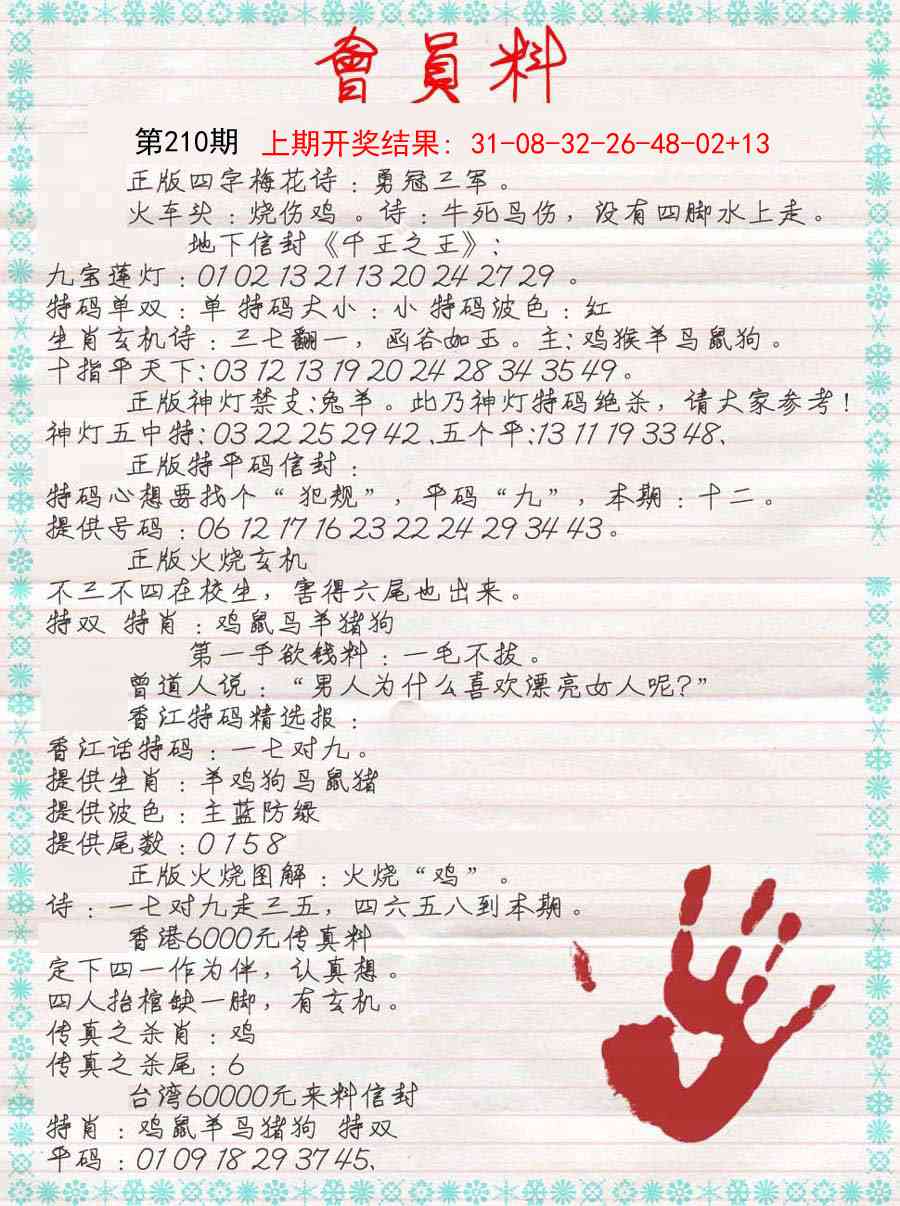 會員料
第210期 上期开奖结果：31-08-32-26-48-02+13
正版四字梅花诗：勇冠三军。
火车头：烧伤鸡。诗：牛死鸟伤，没有四脚水上走。
地下信封《千王之王》：
九宝莲灯：01 02 13 21 13 20 24 27 29 。
特码单双：单 特码大小：小 特码波色：红
生肖玄机诗：三七翻一，函谷如玉。主：鸡猴羊马鼠狗。
十指平天下：03 12 13 19 20 24 28 34 35 49。
正版神灯禁支：兔羊。此乃神灯特码绝杀，请大家参考！
神灯五中特：03 22 25 29 42、五个平：13 11 19 33 48、
正版特平码信封：
特码心想要找个“犯规”，平码“九”，本期：十二。
提供号码：06 12 17 16 23 22 24 29 34 43。
正版火烧玄机
不三不四在校生，害得六尾也出来。
特双 特肖：鸡鼠马羊猪狗
第一手欲钱料：一毛不拔。
曾道人说：“男人为什么喜欢漂亮女人呢?”
香江特码精选报：
香江话特码：一七对九。
提供生肖：羊鸡狗马鼠猪
提供波色：主蓝防绿
提供尾数：0 1 5 8
正版火烧图解：火烧“鸡”。
诗：一七对九走三五，四六五八到本期。
香港6000元传真料
定下四一作为伴，认真想。
四人抬棺缺一脚，有玄机。
传真之杀肖：鸡
传真之杀尾：6
台湾60000元来料信封
特肖：鸡鼠羊马猪狗 特双
平码：01 09 18 29 37 45、